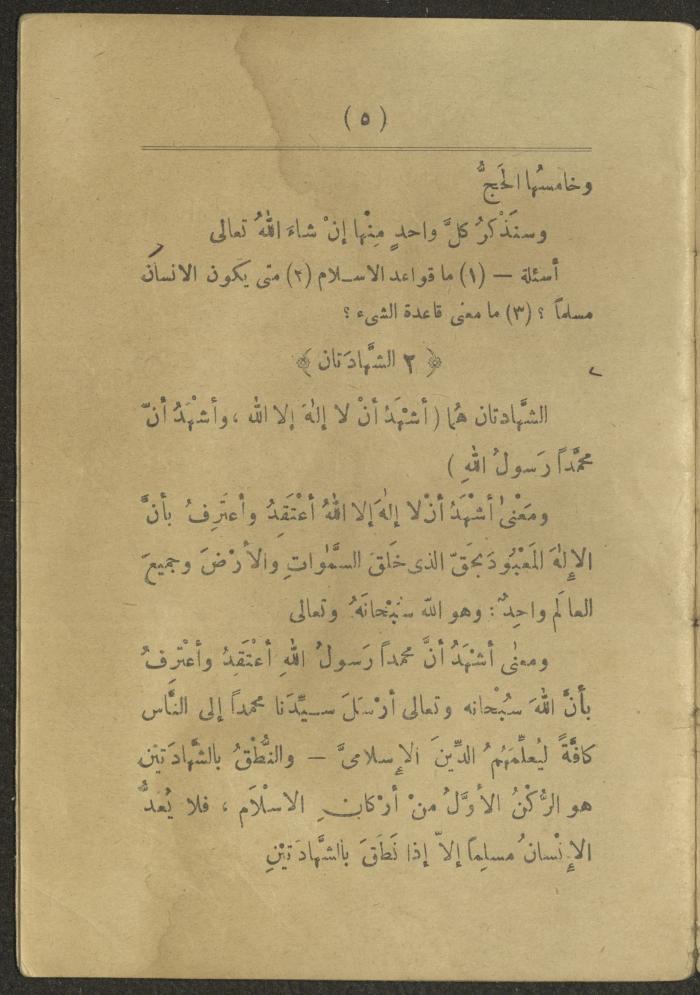 ( ٥ )
وخامسُها الحَجُّ
وسنَذْكرُ كلَّ واحدٍ مِنْها إنْ شاءَ اللهُ تعالى
أسئلة — (١) ما قواعد الاسلام (٢) متى يكون الانسان
مسلماً ؟ (٣) ما معنى قاعدة الشىء ؟
﴿ ٢ الشَّهادَتان ﴾
الشَّهادتان هُما ( أشْهَدُ أنْ لا إلهَ إلا الله ، وأشْهَدُ أنّ
محمَّداً رَسولُ اللهِ )
ومَعْنى أشْهَدُ أنْ لا إلهَ إلا اللهُ أعْتَقِدُ وأعتَرِفُ بأنَّ
الإلهَ المَعْبُودَ بحَقّ الذى خَلَقَ السَّمٰواتِ والأرْضَ وجميعَ
العالَم واحِدٌ : وهو اللّه سُبْحانَهُ وتعالى
ومعنى أشْهَدُ أنَّ محمداً رَسولُ اللهِ أعْتَقِدُ وأعْتَرِفُ
بأنَّ اللهَ سُبْحانه وتعالى أرْسَلَ سيِّدَنا محمداً إلى النَّاس
كافَّةً ليُعلِّمَهُمُ الدِّينَ الإسلامىَّ — والنُّطْقُ بالشَّهادَتيْنِ
هو الرُّكْنُ الأوَّلُ مِنْ أرْكانِ الاسْلَام ، فلا يُعَدُّ
الإنْسانُ مسلِماً إلاّ إذا نَطَقَ بالشَّهادَتيْنِ